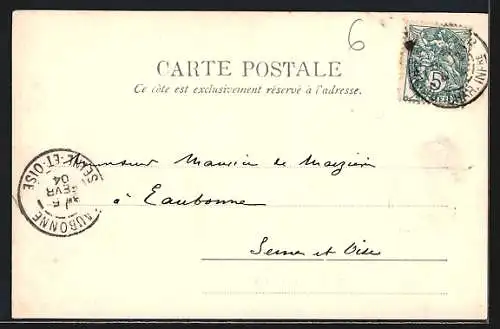 6
CARTE POSTALE
Ce côte est exclusivement réservé à l'adresse.
5
CHAR. INFRE
Monsieur Maurice de Mézières
à Eaubonne
Seine et Oise
EAUBONNE
SEINE-ET-OISE
5
FEVR
04